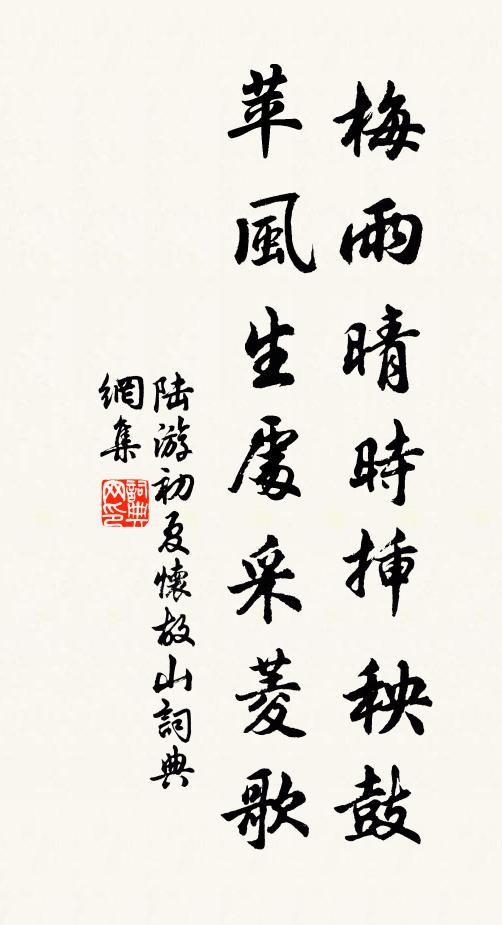 梅雨晴時插秧鼓
苹風生處采菱歌
陸游初夏懷故山詞典
網集
詞典網印